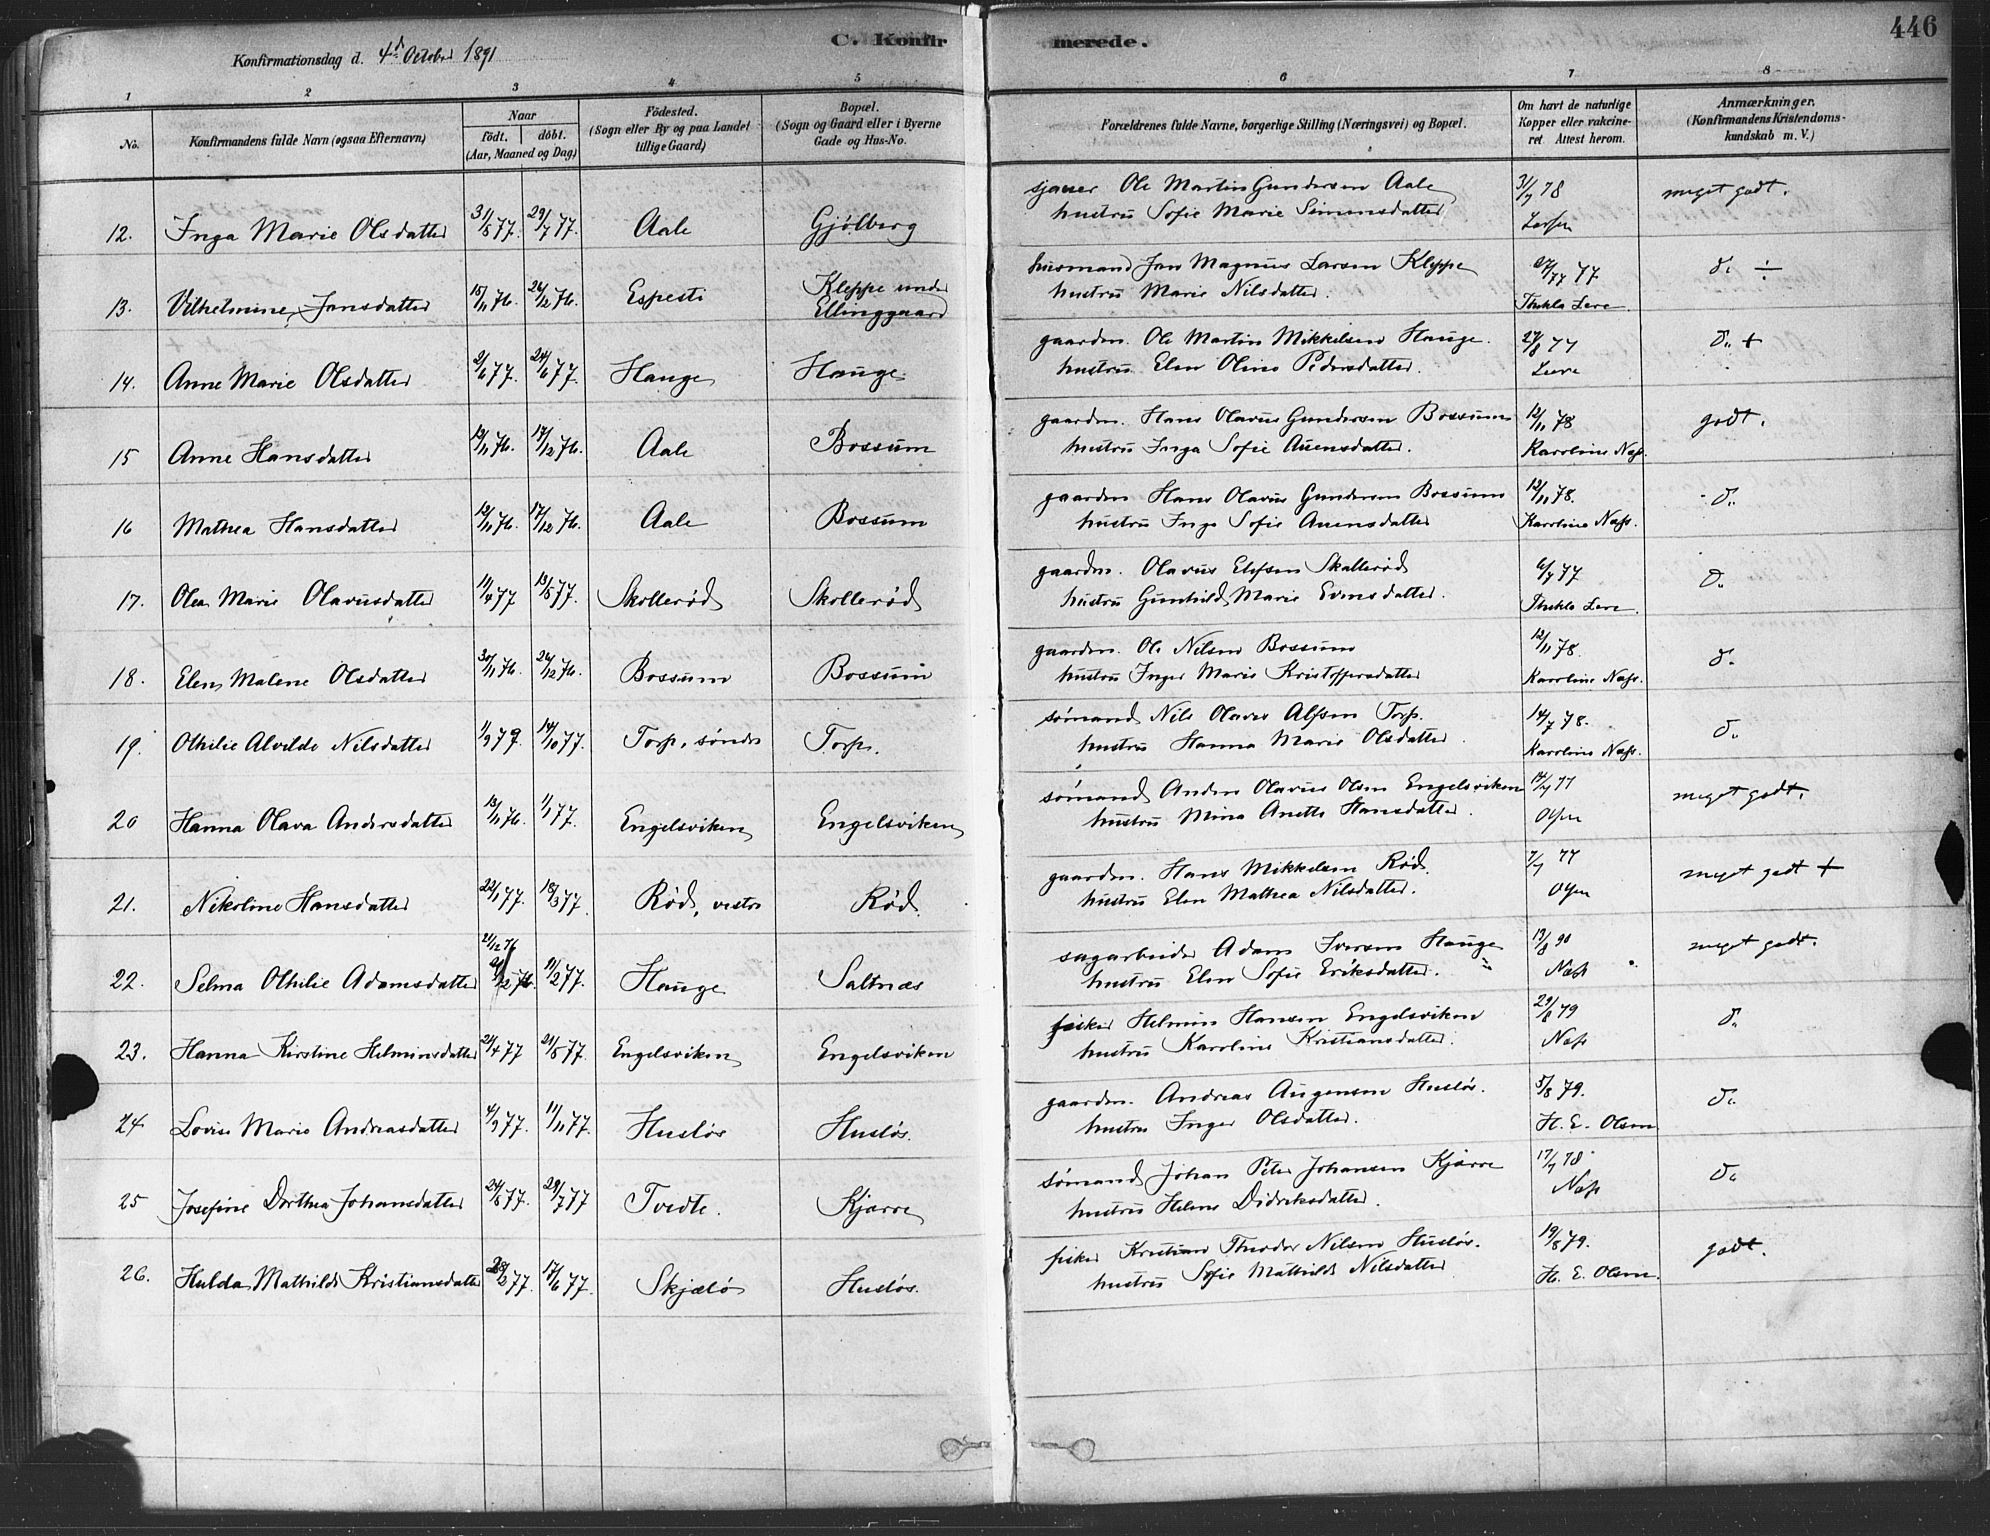 446
C. Konfirmerede.
Konfirmationsdag d. 4d October 1891
1 2 3 4 5 6 7 8
No. Konfirmandens fulde Navn (ogsaa Efternavn) Naar født. døbt. (Aar, Maaned og Dag) Fødested. (Sogn eller By og paa Landet tillige Gaard) Bopæl. (Sogn og Gaard eller i Byerne Gade og Hus-No. Forældrenes fulde Navne, borgerlige Stilling (Næringsvei) og Bopæl. Om havt de naturlige Kopper eller vakcineret Attest herom. Anmærkninger. (Konfirmandens Kristendomskundskab m. V.)
12. Inga Marie Olsdatter 31/5 77. 29/7 77. Aale Gjølberg sjauer Ole Martin Gundersen Aale 31/7 78 meget godt.
hustru Sofie Marie Simensdatter Larsen
13. Vilhelmine Jansdatter 15/11 76. 26/12 76. Espesti Kleppe under Ellinggaard husmand Jan Magnus Larsen Kleppe 77 do ÷
hustru Marie Nilsdatter. Thekla Lere
14. Anne Marie Olsdatter 2/6 77. 24/6 77. Hauge Hauge. gaardm. Ole Martin Mikkelsen Hauge. 27/8 77 do +
hustru Elen Oline Pedersdatter. Lere
15 Anne Hansdatter 12/11 76. 17/12 76. Aale Bossum gaardm. Hans Olavus Gundersen Bossum 12/11 78 godt.
hustru Inga Sofie Auensdatter. Karoline Næss.
16 Mathea Hansdatter 12/11 76. 17/12 76. Aale Bossum gaardm Hans Olavus Gundersen Bossum 12/11 78. do
hustru Inga Sofie Auensdatter Karoline Næss.
17. Olea Marie Olavusdatter 11/4 77 13/5 77. Skollerød Skollerød gaardm. Olavus Elefsen Skallerød 6/7 77 do
hustru Gunhild Marie Evensdatter. Thekla Lere.
18. Elen Malene Olsdatter 30/11 76. 26/12 76. Bossum Bossum gaardm. Ole Nilsen Bossum 12/11 78. do
hustru Inger Marie Kristoffersdatter Karoline Næss.
19. Othilie Alvilde Nilsdatter 1/9 77 14/10 77. Torp, søndre Torp. sømand Nils Olaves Alfsen Torp. 14/7 78. do
hustru Hanna Marie Olsdatter. Karoline Næss.
20 Hanna Olava Andersdatter 13/11 76. 1/1 77. Engelsviken Engelsviken sømand Anders Olavus Olsen Engelsviken 14/7 77 meget godt.
hustru Mina Anette Hansdatter. Olsen
21. Nikoline Hansdatter 22/1 77. 18/3 77. Rød, vestre Rød. gaardm. Hans Mikkelsen Rød. 7/7 77 meget godt +
hustru Elen Mathea Nilsdatter. Olsen
22. Selma Othilie Adamsdatter 21/12 76 11/2 77. Hauge Saltnæs sagarbeider Adam Iversen Hauge 13/8 90 meget godt.
hustru Elen Sofie Eriksdatter. Næss
23. Hanna Kirstine Helminsdatter 24/4 77 21/5 77. Engelsviken Engelsviken fisker Helmin Hansen Engelsviken 29/8 79 do
hustru Karoline Kristiansdatter. Næss
24 Lovise Marie Andreasdatter 4/9 77. 11/11 77. Husløs Husløs. gaardm. Andreas Augensen Husløs. 5/8 79. do
hustru Inger Olsdatter. H. E. Olsen
25 Josefine Dorthea Johansdatter 24/5 77. 29/7 77 Tvedte. Kjærre sømand Johan Peter Johansen Kjærre 17/7 78 do
hustru Helene Didriksdatter. Næss
26. Hulda Mathilde Kristiansdatter 28/2 77. 17/6 77. Skjælø Husløs. fisker Kristian Theodor Nilsen Husløs. 19/8 79. godt.
hustru Sofie Mathilde Nilsdatter H. E. Olsen.